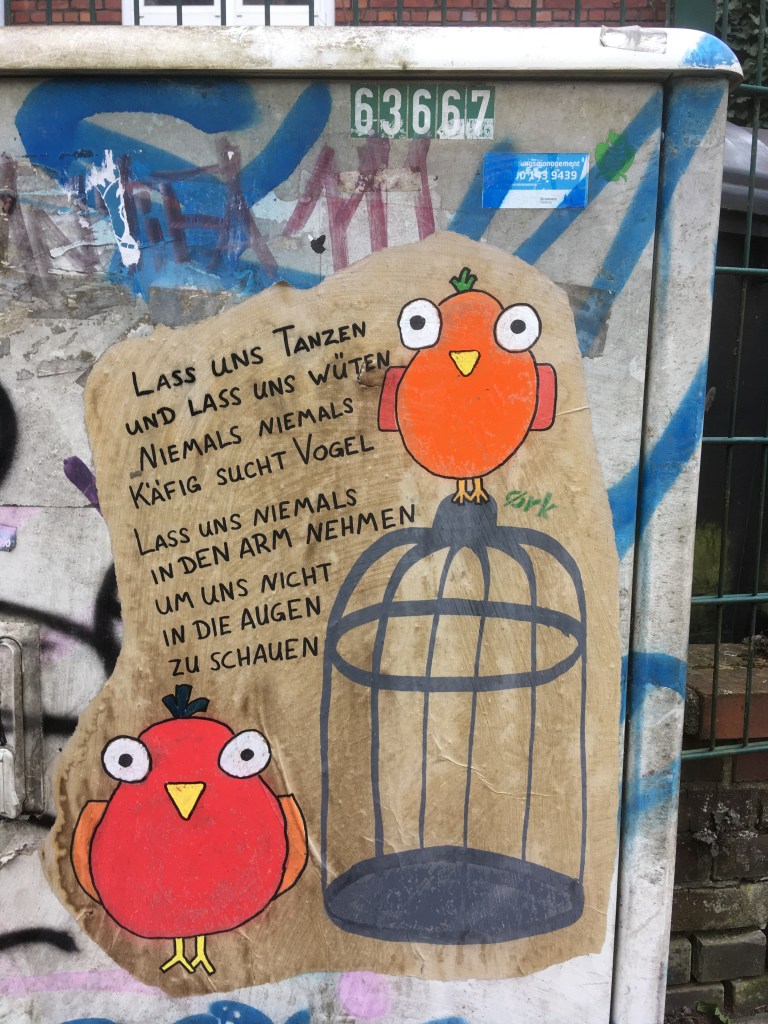 63667
0 143 9439
LASS UNS TANZEN
UND LASS UNS WÜTEN
NIEMALS NIEMALS
KÄFIG SUCHT VOGEL
LASS UNS NIEMALS
IN DEN ARM NEHMEN
UM UNS NICHT
IN DIE AUGEN
ZU SCHAUEN
Ørk